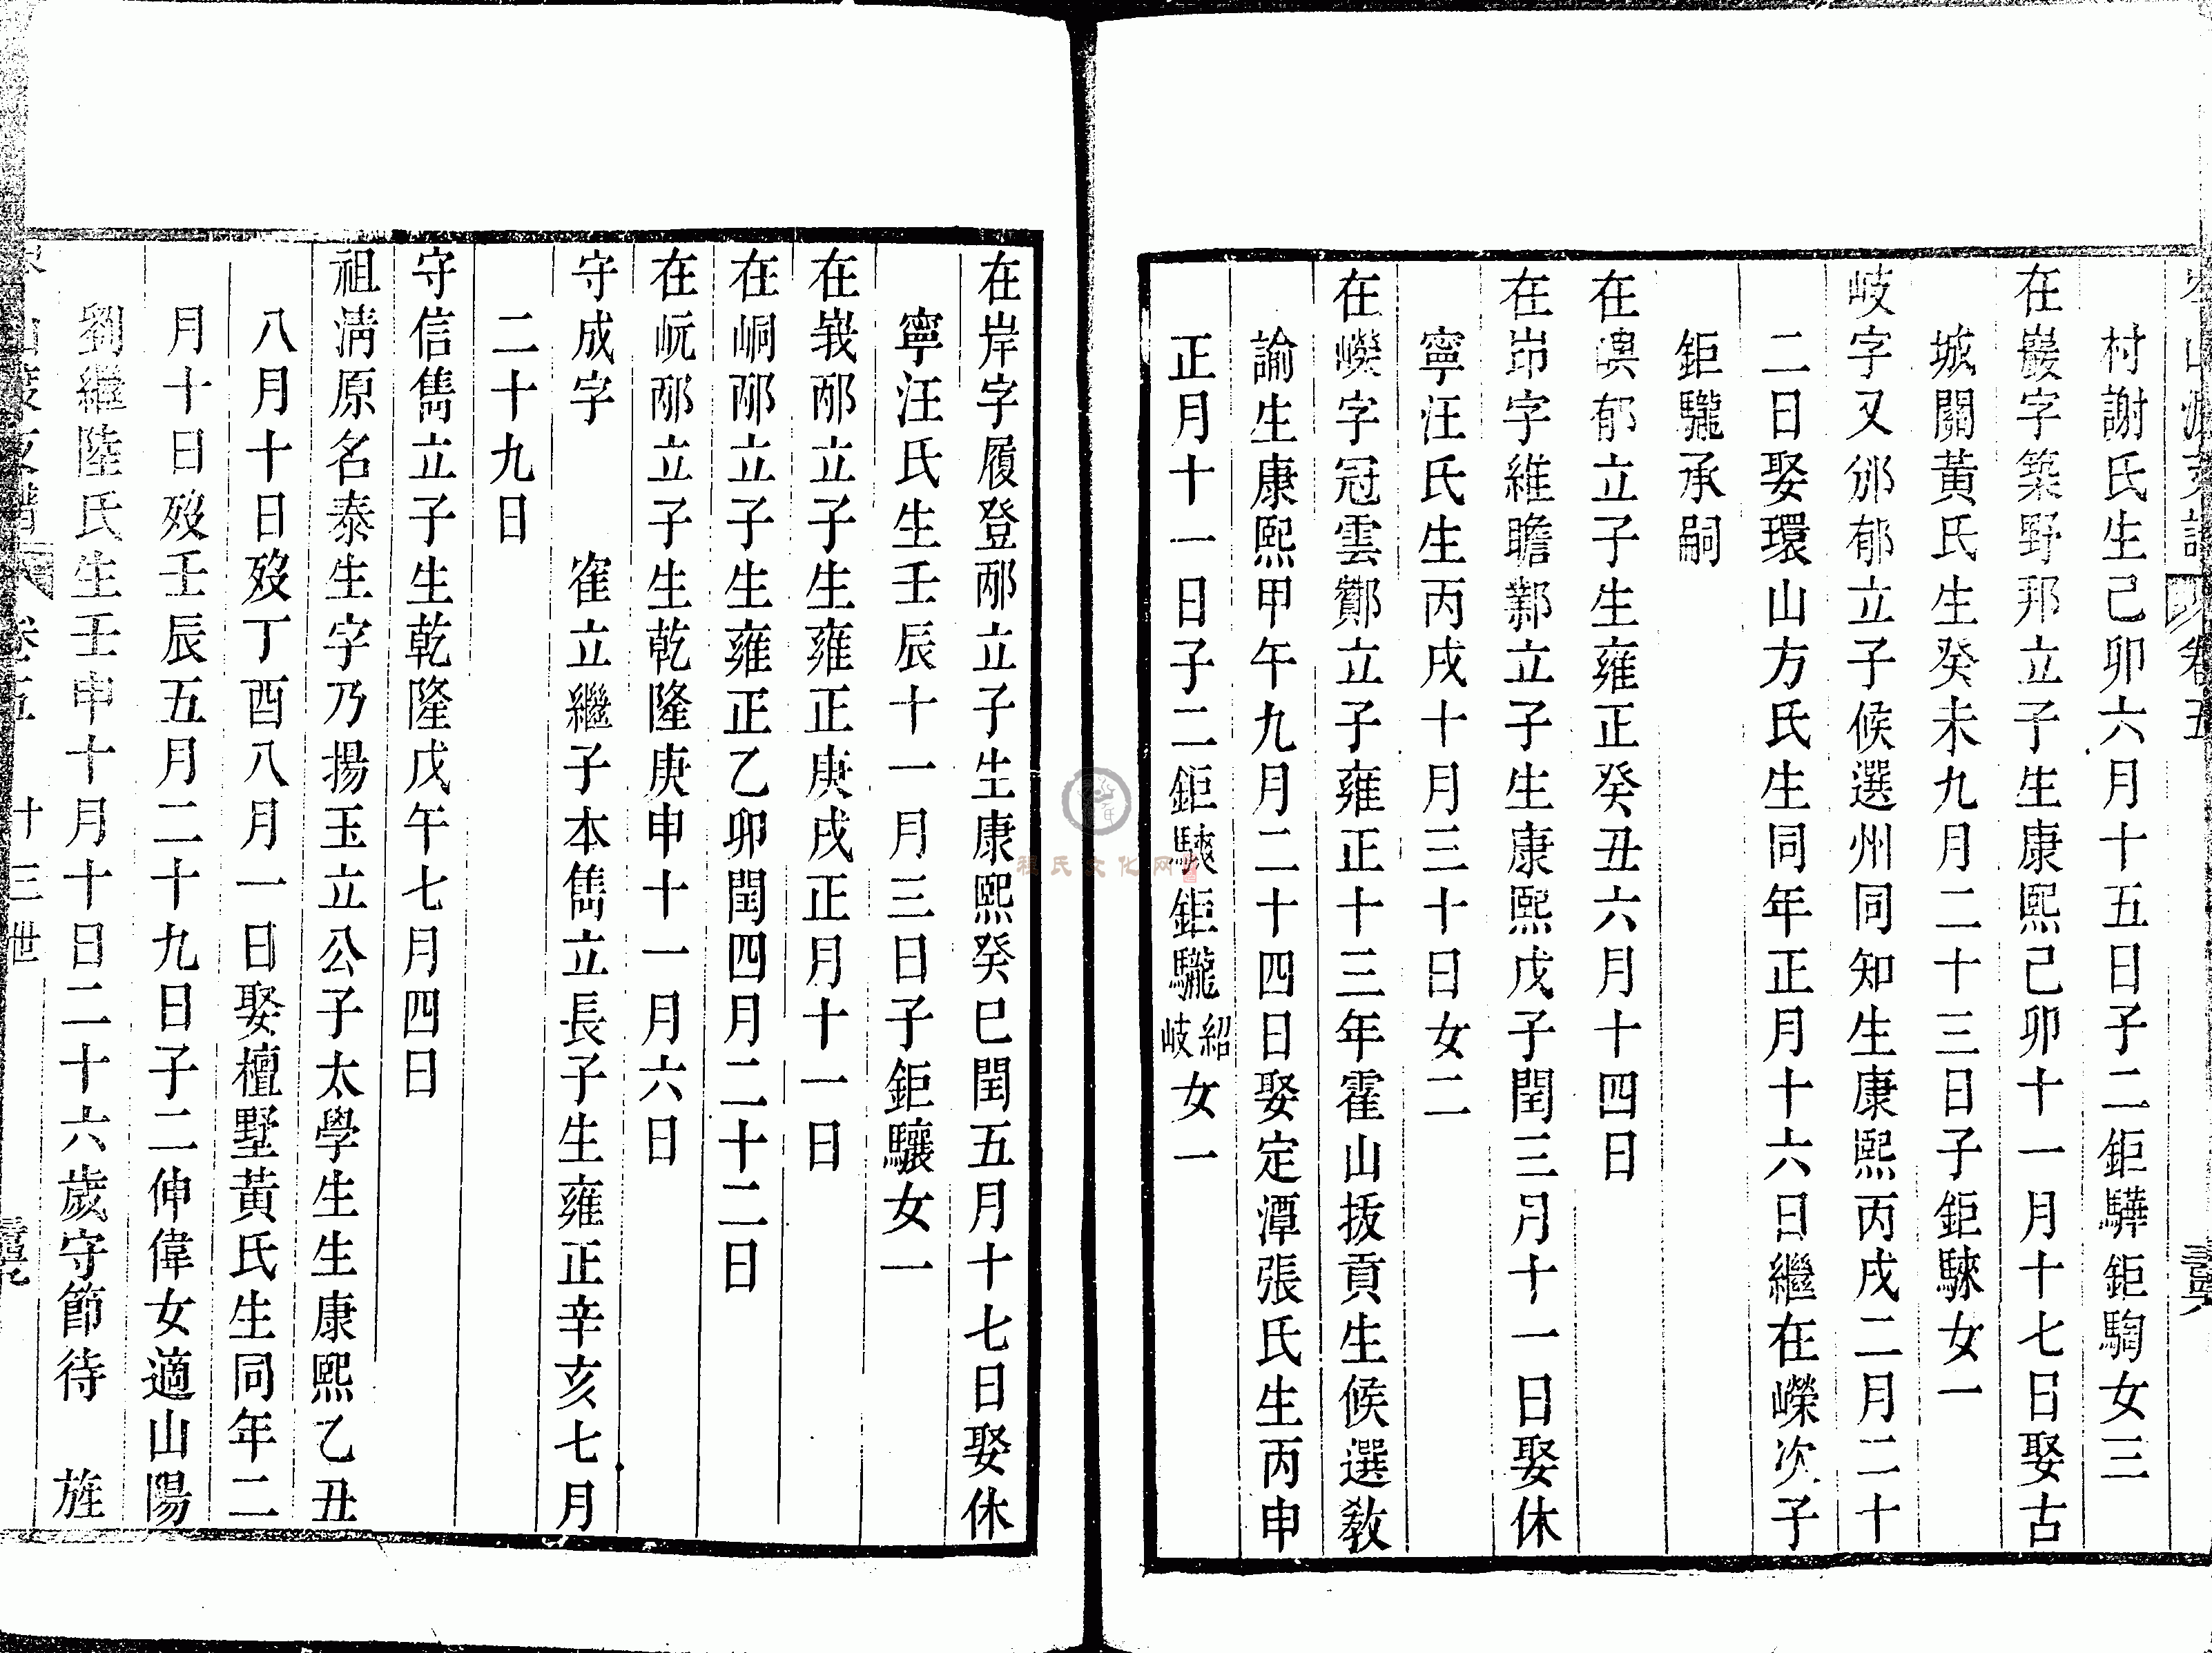 卷五
村謝氏生己卯六月十五日子二鉅驊鉅騊女三
在巖字築野邦立子生康熙己卯十一月十七日娶古
城關黃氏生癸未九月二十三日子鉅騋女一
岐字又邠郁立子候選州同知生康熙丙戌二月二十
二日娶環山方氏生同年正月十六日繼在嶸次子
鉅驪承嗣
在㠘郁立子生雍正癸丑六月十四日
在岇字維瞻鄴立子生康熙戊子閏三月十一日娶休
寧汪氏生丙戌十月三十日女二
在嶸字冠雲酇立子雍正十三年霍山拔貢生候選教
諭生康熙甲午九月二十四日娶定潭張氏生丙申
正月十一日子二鉅騻鉅驪紹岐女一
在岸字履登邴立子生康熙癸巳閏五月十七日娶休
寧汪氏生壬辰十一月三日子鉅驤女一
在峩邴立子生雍正庚戌正月十一日
在峒邴立子生雍正乙卯閏四月二十二日
在岏邴立子生乾隆庚申十一月六日
守成字 隺立繼子本雋立長子生雍正辛亥七月
二十九日
守信雋立子生乾隆戊午七月四日
祖淸原名泰生字乃揚玉立公子太學生生康熙乙丑
八月十日歿丁酉八月一日娶檀墅黃氏生同年二
月十日歿壬辰五月二十九日子二伸偉女適山陽
劉繼陸氏生壬申十月十日二十六歲守節待 旌
卷五 十三世
程氏文化网